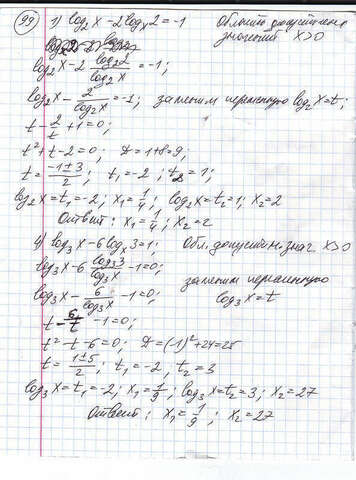 99 1) log₂x - 2logₓ2 = -1 Область допустимых
значений x>0
log₂x - 2 log₂2/log₂x = -1;
log₂x - 2/log₂x = -1; заменим переменную log₂x = t;
t - 2/t + 1 = 0;
t² + t - 2 = 0; D = 1+8 = 9;
t = (-1±3)/2; t₁ = -2; t₂ = 1;
log₂x = t₁ = -2; x₁ = 1/4; log₂x = t₂ = 1; x₂ = 2
Ответ: x₁ = 1/4; x₂ = 2
4) log₃x - 6logₓ3 = 1; Обл. допустим. знач. x>0
log₃x - 6 log₃3/log₃x - 1 = 0;
заменим переменную
log₃x - 6/log₃x - 1 = 0; log₃x = t
t - 6/t - 1 = 0;
t² - t - 6 = 0; D = (-1)² + 24 = 25
t = (1±5)/2; t₁ = -2, t₂ = 3
log₃x = t₁ = -2; x₁ = 1/9; log₃x = t₂ = 3; x₂ = 27
Ответ: x₁ = 1/9; x₂ = 27